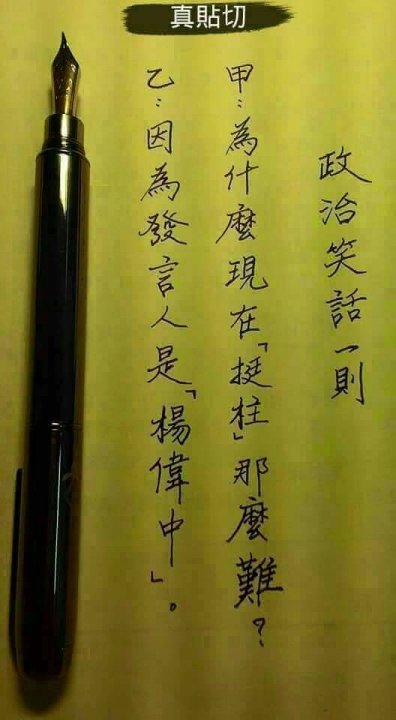 真貼切
政治笑話一則
甲：為什麼現在「挺柱」那麼難？
乙：因為發言人是「楊偉中」。